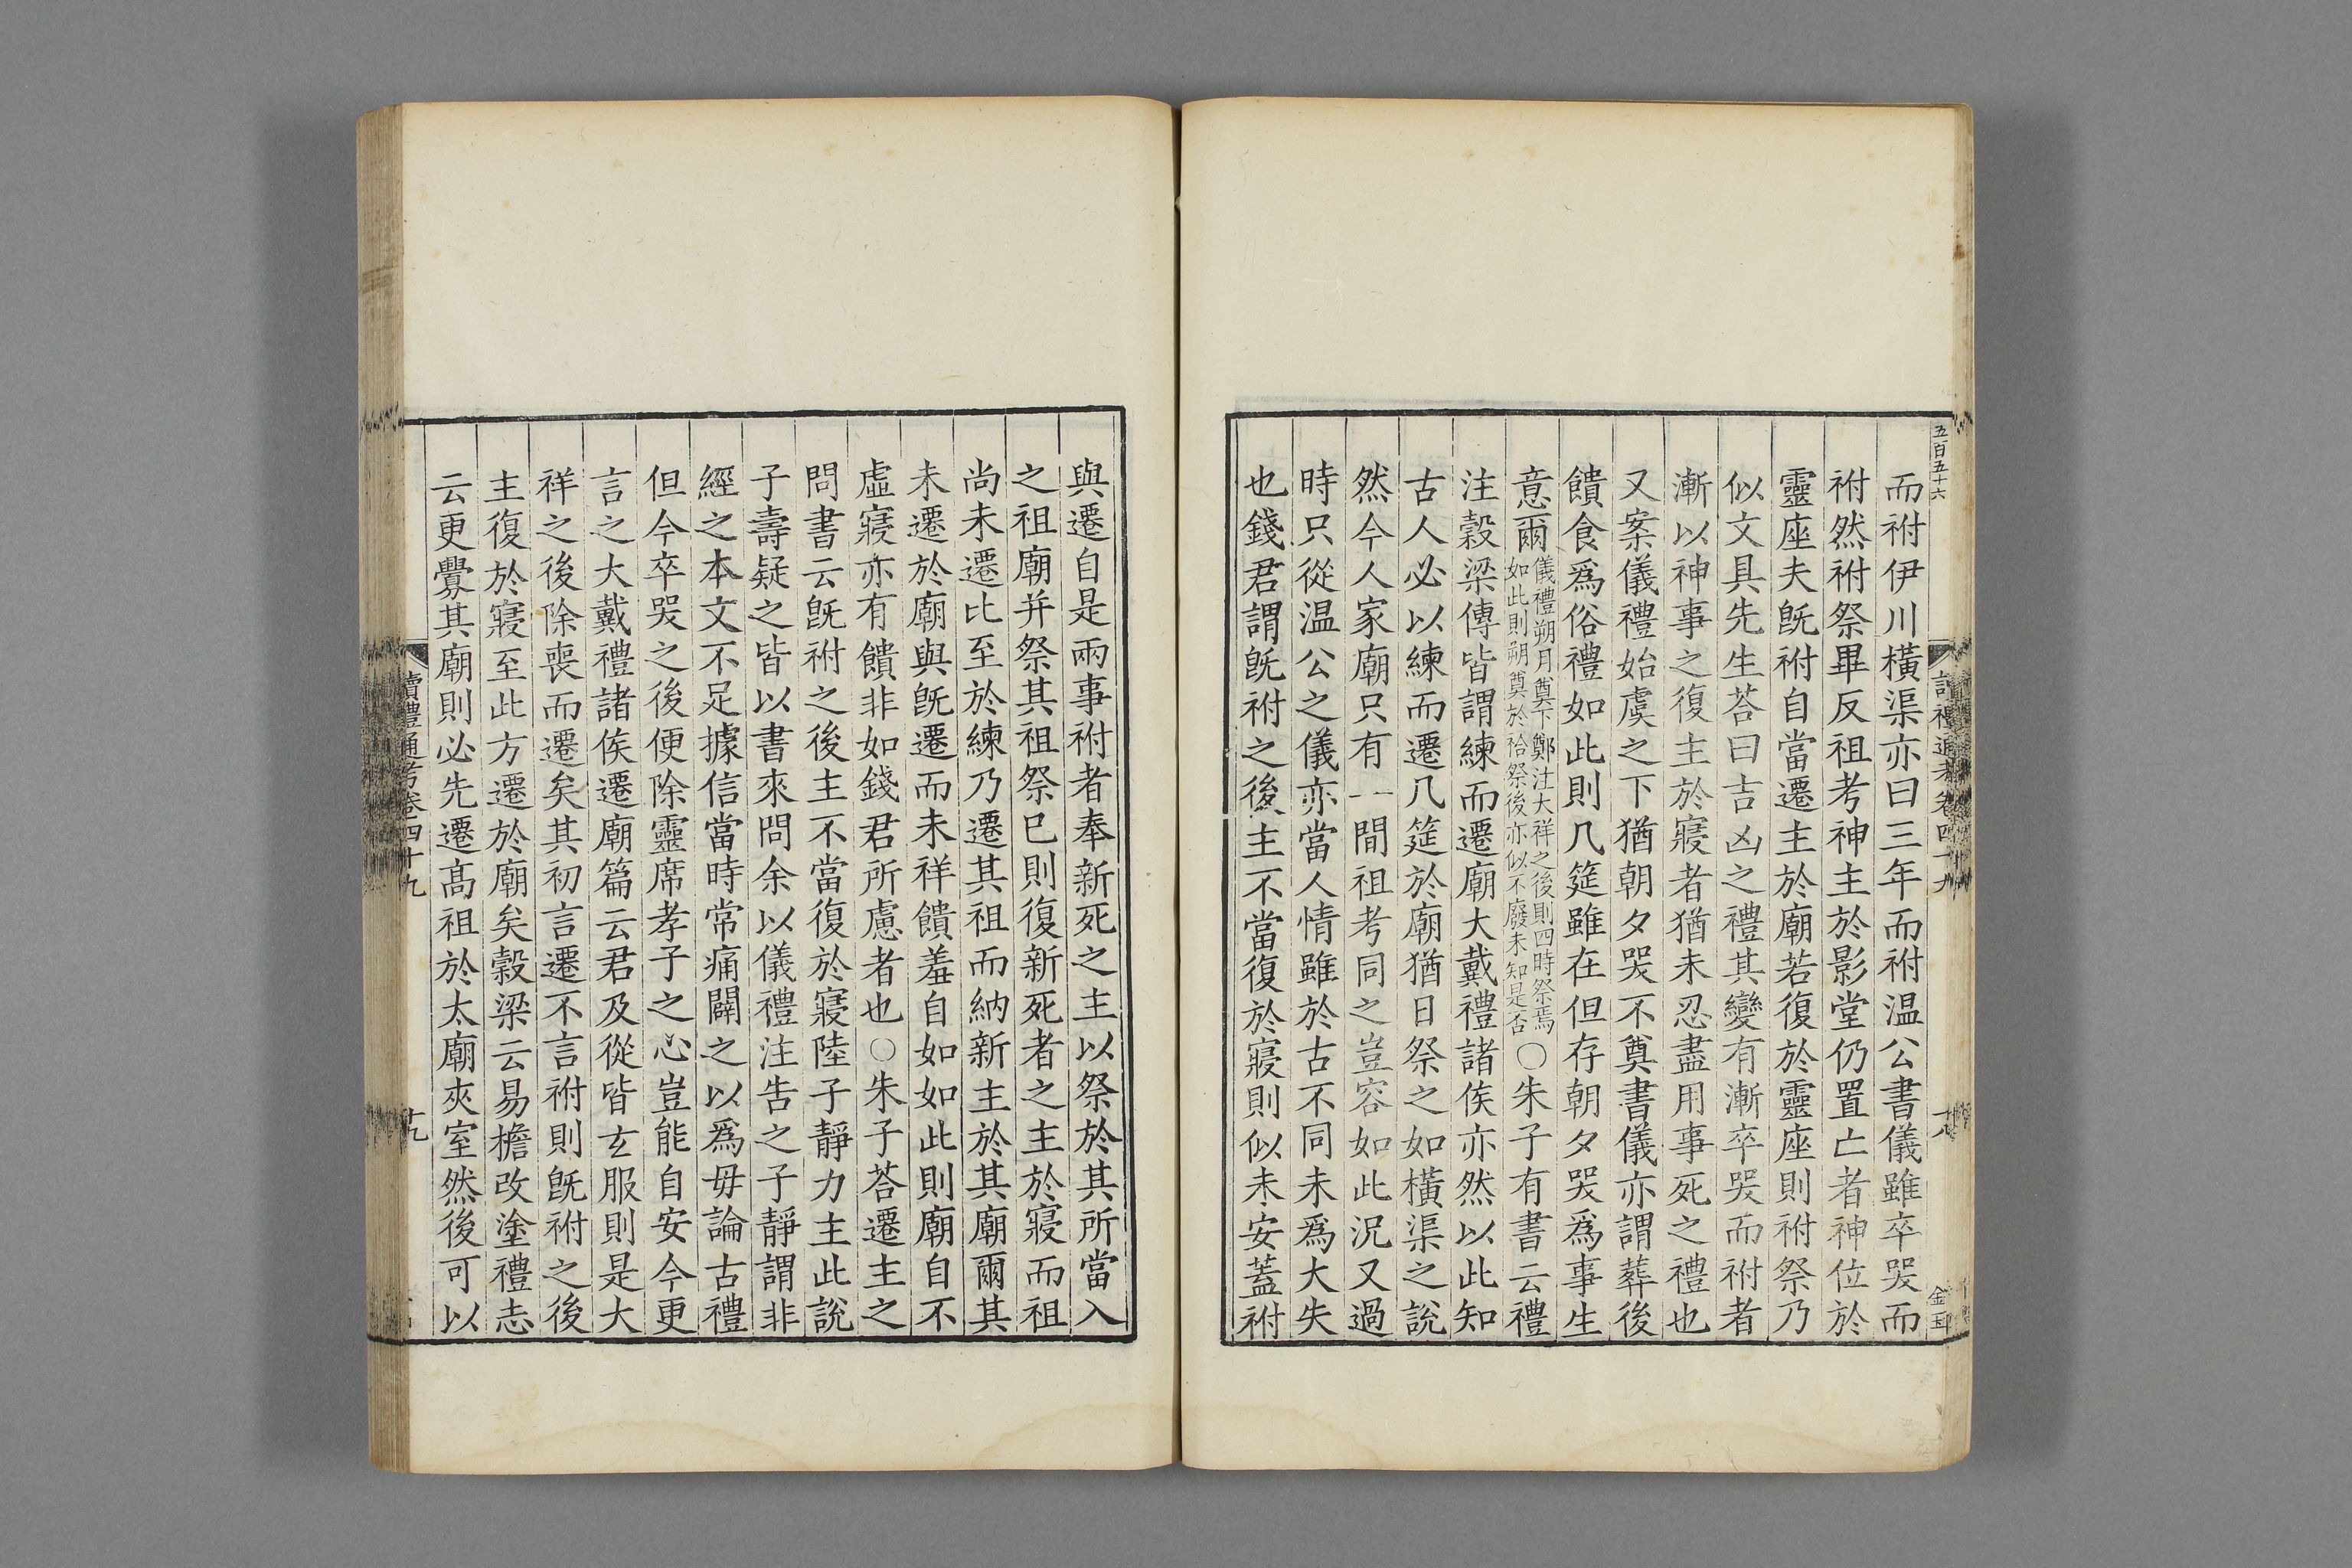 五百五十六
讀禮通考卷四十九
十八
金玉
而祔伊川橫渠亦曰三年而祔温公書儀雖卒哭而
祔然祔祭畢反祖考神主於影堂仍置亡者神位於
靈座夫旣祔自當遷主於廟若復於靈座則祔祭乃
似文具先生荅曰吉凶之禮其變有漸卒哭而祔者
漸以神事之復主於寢者猶未忍盡用事死之禮也
又案儀禮始虞之下猶朝夕哭不奠書儀亦謂葬後
饋食爲俗禮如此則几筵雖在但存朝夕哭爲事生
意爾儀禮朔月奠下鄭注大祥之後則四時祭焉如此則朔奠於祫祭後亦似不廢未知是否○朱子有書云禮
注穀梁傳皆謂練而遷廟大戴禮諸侯亦然以此知
古人必以練而遷几筵於廟猶日祭之如橫渠之說
然今人家廟只有一間祖考同之豈容如此况又過
時只從温公之儀亦當人情雖於古不同未爲大失
也錢君謂旣祔之後主不當復於寢則似未安蓋祔
與遷自是兩事祔者奉新死之主以祭於其所當入
之祖廟并祭其祖祭已則復新死者之主於寢而祖
尚未遷比至於練乃遷其祖而納新主於其廟爾其
未遷於廟與旣遷而未祥饋羞自如如此則廟自不
虛寢亦有饋非如錢君所慮者也○朱子荅遷主之
問書云旣祔之後主不當復於寢陸子靜力主此說
子壽疑之皆以書來問余以儀禮注告之子靜謂非
經之本文不足據信當時常痛闢之以爲毋論古禮
但今卒哭之後便除靈席孝子之心豈能自安今更
言之大戴禮諸侯遷廟篇云君及從皆玄服則是大
祥之後除喪而遷矣其初言遷不言祔則旣祔之後
主復於寢至此方遷於廟矣穀梁云易檐改塗禮志
云更釁其廟則必先遷高祖於太廟夾室然後可以
讀禮通考卷四十九
十九